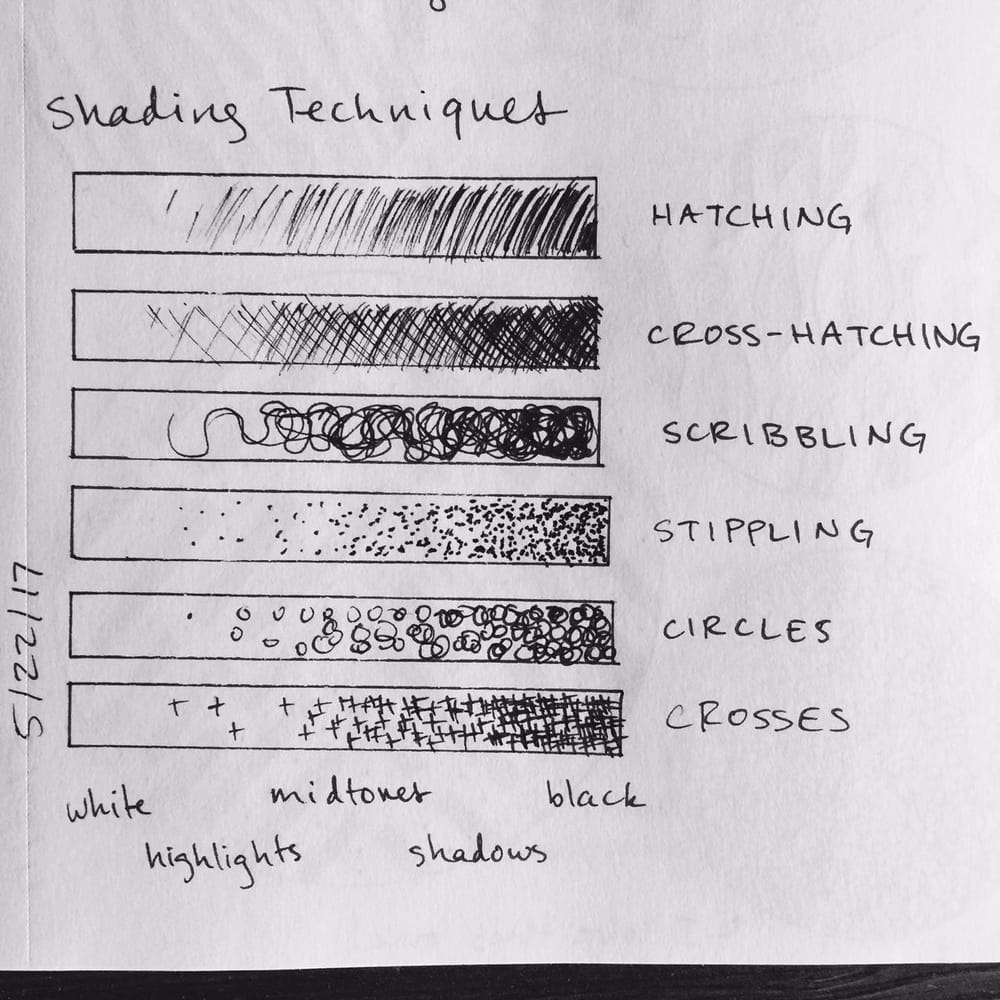 Shading Techniques
HATCHING
CROSS-HATCHING
SCRIBBLING
STIPPLING
CIRCLES
CROSSES
5/22/17
white midtones black
highlights shadows